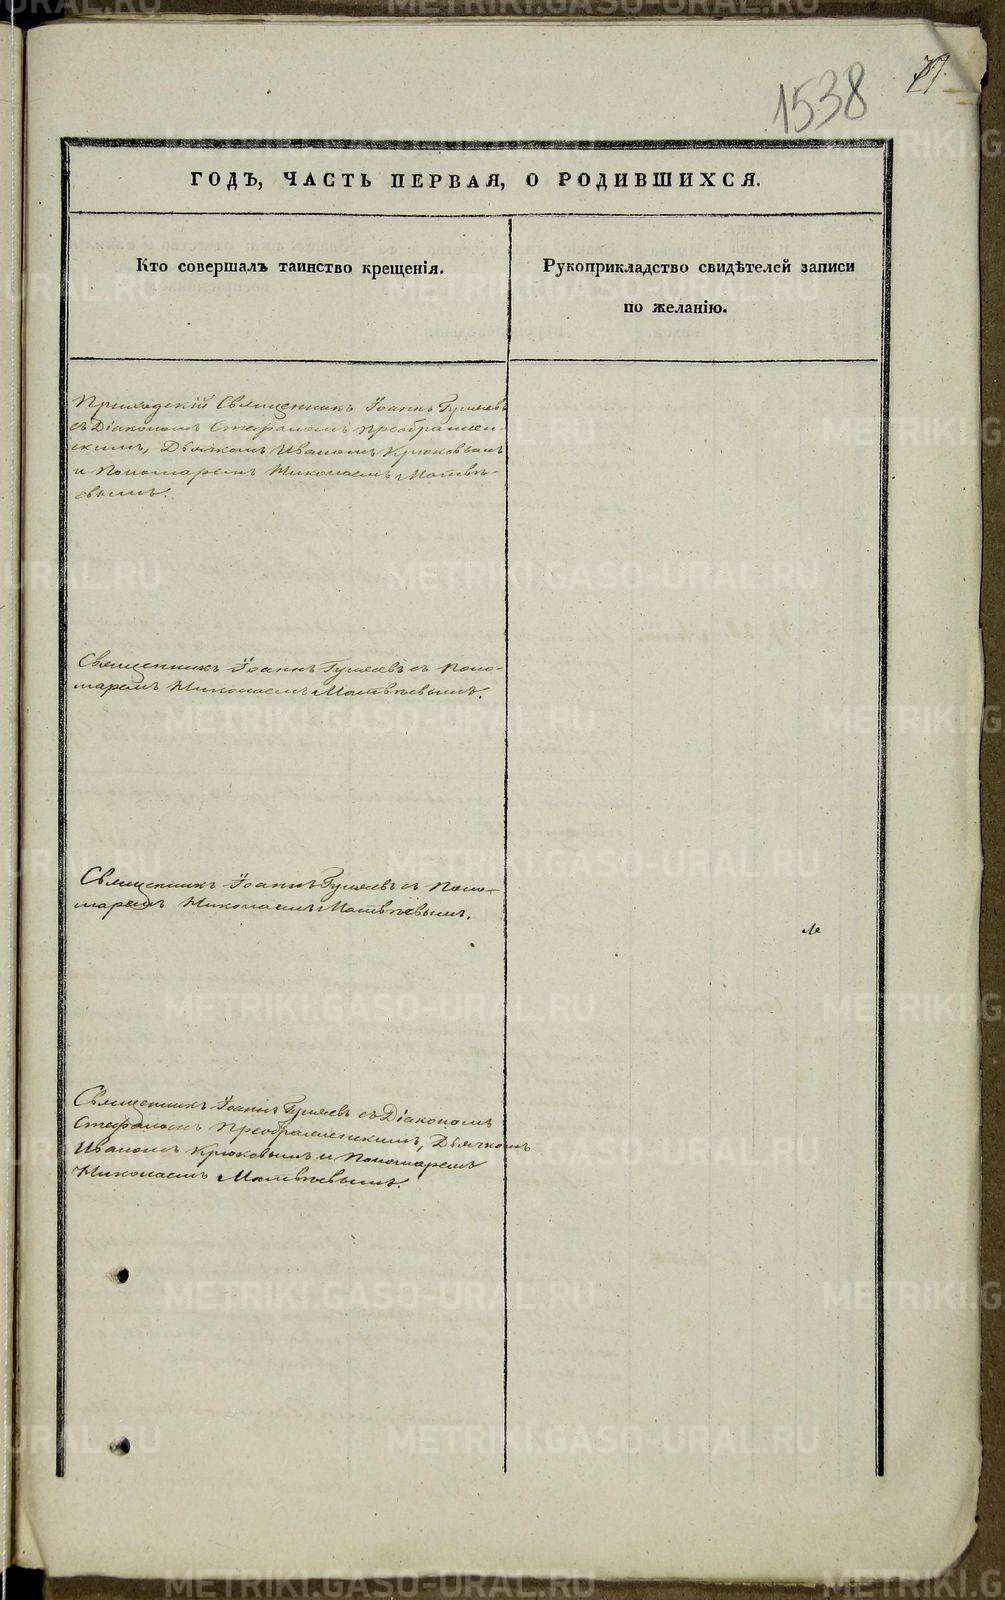 1538
ГОДЪ, ЧАСТЬ ПЕРВАЯ, О РОДИВШИХСЯ.
Кто совершалъ таинство крещенія.
Рукоприкладство свидѣтелей записи
по желанію.
Приходскій Священникъ Іоаннъ Гуляевъ
съ Діакономъ Стефаномъ Преображен-
скимъ, Дьячкомъ Иваномъ Крюковымъ
и Пономаремъ Николаемъ Матвѣ-
евымъ.
Священникъ Іоаннъ Гуляевъ съ Поно-
маремъ Николаемъ Матвѣевымъ.
Священникъ Іоаннъ Гуляевъ съ Поно-
маремъ Николаемъ Матвѣевымъ.
Священникъ Іоаннъ Гуляевъ съ Діакономъ
Стефаномъ Преображенскимъ, Дьячкомъ
Иваномъ Крюковымъ и Пономаремъ
Николаемъ Матвѣевымъ.
METRIKI.GASO-URAL.RU